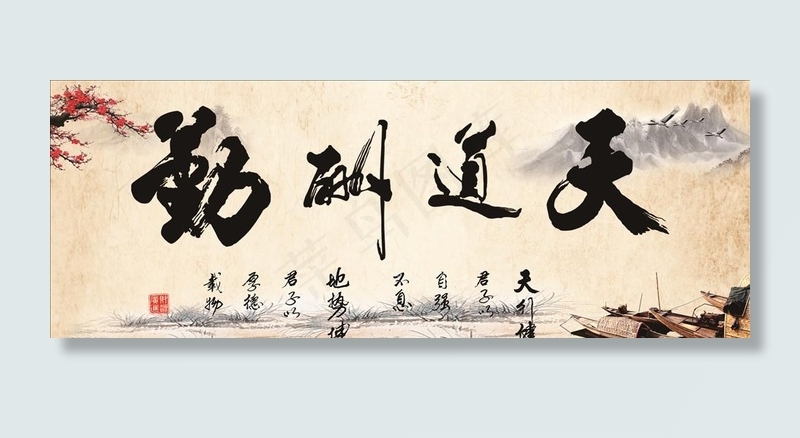 天道酬勤
天行健
君子以
自强
不息
地势
君子以
厚德
載物